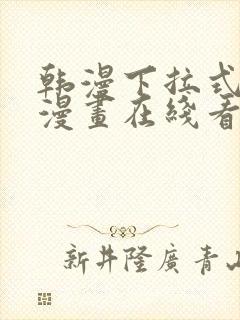 韩漫下拉式
漫畫在綫看
新井隆廣 青山